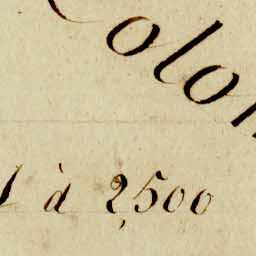 Colon
1 à 2,500